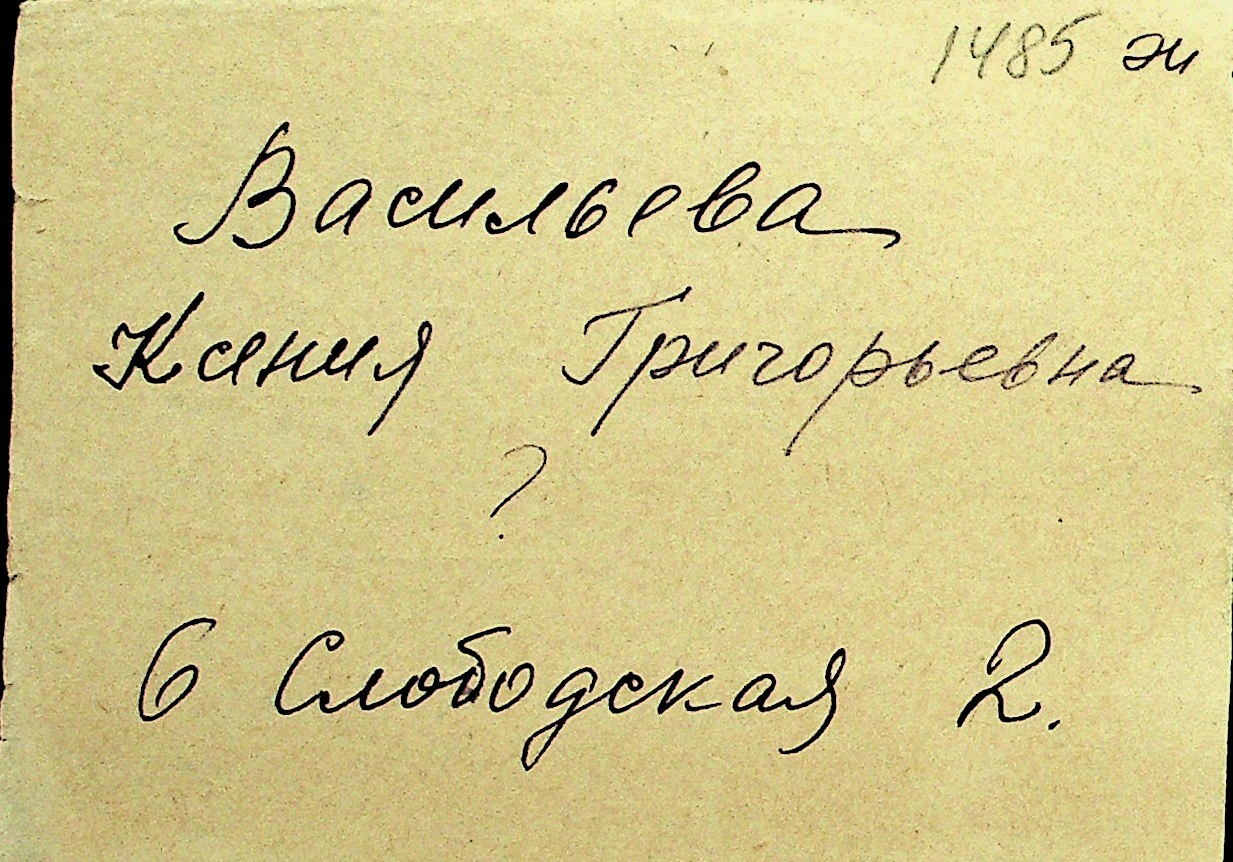 1485 эи
Васильева
Ксения Григорьевна
?
6 Слободская 2.